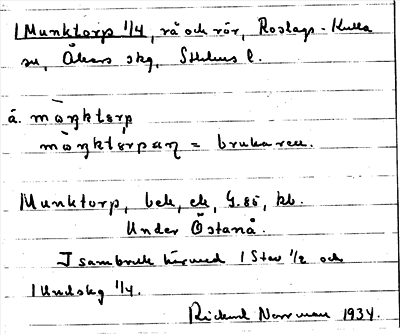 1 Munktorp 1/4, rå och rör, Roslags-Kulla
sn, Åkers skg, Sthlms l.
å. mòŋktɛrp
mòŋktɛ̀rpaɳ = brukaren.
Munktorp, beb, ek, G.85, kb.
Under Östanå.
I sambruk härmed 1 Stav 1/2 och
1 Undskg 1/4.
Rickard Norrman 1934.